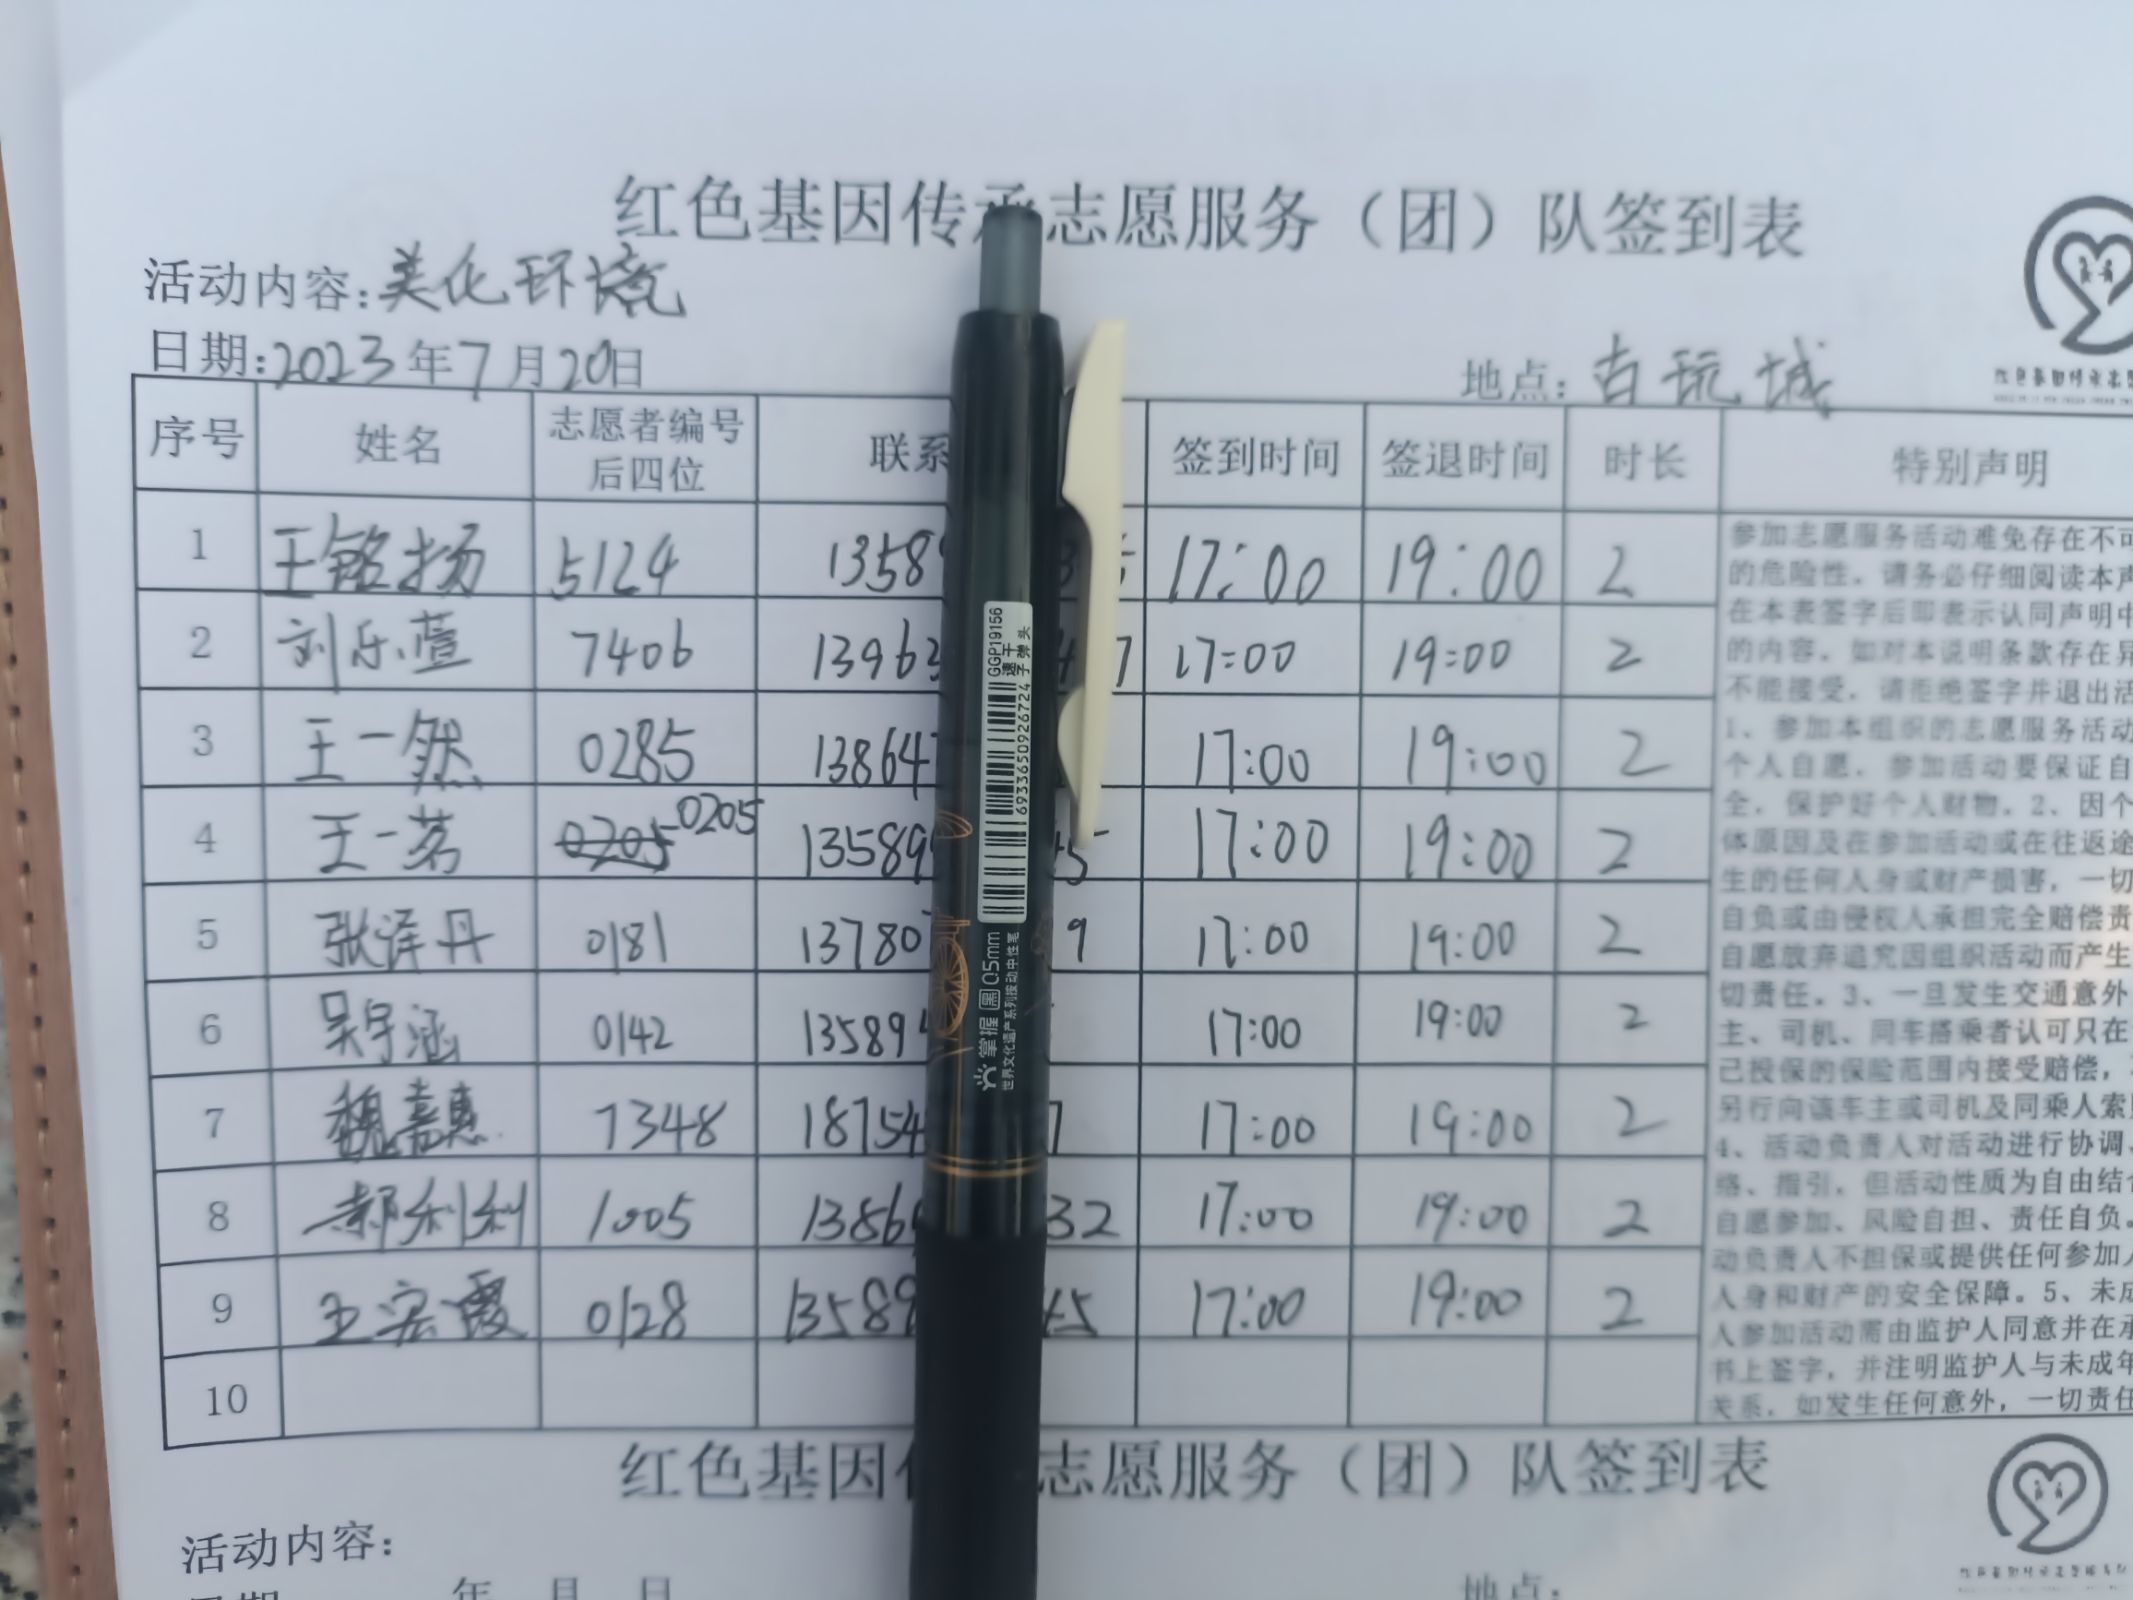 红色基因传承志愿服务（团）队签到表
活动内容：美化环境
日期：2023年7月20日 地点：古玩城
序号 姓名 志愿者编号后四位 联系 签到时间 签退时间 时长 特别声明
1 王铭扬 5124 13589 17:00 19:00 2
2 刘乐萱 7406 13963 7 17:00 19:00 2
3 王一然 0285 13864 17:00 19:00 2
4 王一茗 0205 0205 13589 45 17:00 19:00 2
5 张泽丹 0181 13780 9 17:00 19:00 2
6 吴宇涵 0142 13589 17:00 19:00 2
7 魏嘉惠 7348 18754 7 17:00 19:00 2
8 郝利利 1005 1386 32 17:00 19:00 2
9 王宏霞 0128 13589 45 17:00 19:00 2
10
参加志愿服务活动难免存在不可
的危险性，请务必仔细阅读本声
在本表签字后即表示认同声明中
的内容。如对本说明条款存在异
不能接受，请拒绝签字并退出活
1、参加本组织的志愿服务活动
个人自愿，参加活动要保证自
全，保护好个人财物。2、因个
体原因及在参加活动或在往返途
生的任何人身或财产损害，一切
自负或由侵权人承担完全赔偿责
自愿放弃追究因组织活动而产生
切责任。3、一旦发生交通意外
主、司机、同车搭乘者认可只在
己投保的保险范围内接受赔偿，
另行向该车主或司机及同乘人索
4、活动负责人对活动进行协调、
络、指引，但活动性质为自由结合
自愿参加、风险自担、责任自负。
动负责人不担保或提供任何参加人
人身和财产的安全保障。5、未成
人参加活动需由监护人同意并在承
书上签字，并注明监护人与未成年
关系，如发生任何意外，一切责任
GGP19156
速干
子弹头
6933650926724
掌握 黑 0.5mm
世界文化遗产系列按动中性笔
红色基因传 志愿服务（团）队签到表
活动内容：
日期 年 月 日 地点：